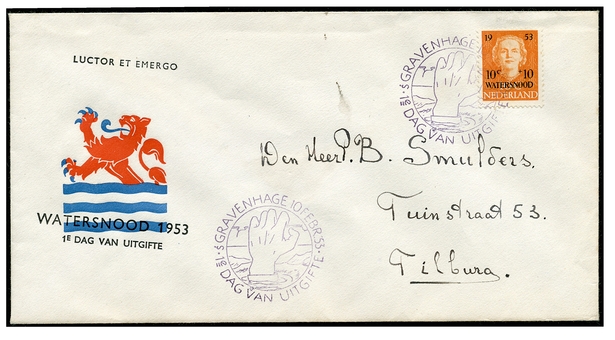 LUCTOR ET EMERGO
WATERSNOOD 1953
1E DAG VAN UITGIFTE
'S GRAVENHAGE 10 FEBR 53
1E DAG VAN UITGIFTE
'S GRAVENHAGE
1E DAG VAN UITGIFTE
19 53
10c +10
WATERSNOOD
NEDERLAND
Den Heer P.B. Smulders.
Tuinstraat 53.
Tilburg.